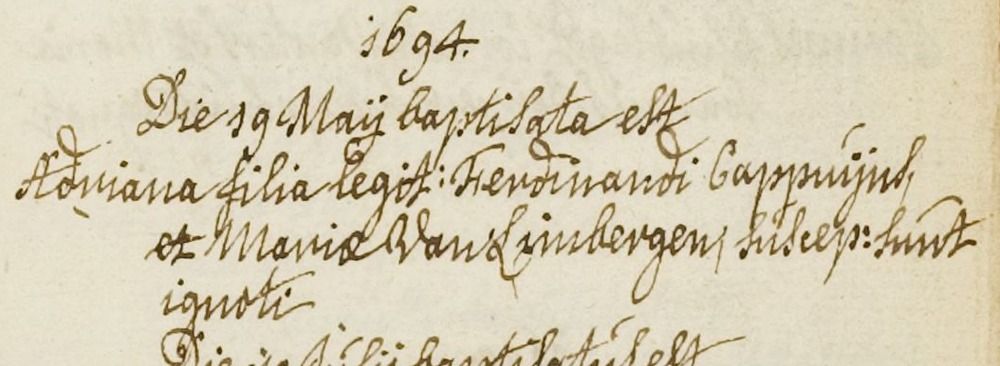 1694.
Die 19 Maij baptisata est
Adriana filia legit: Ferdinandi Cappuijns,
et Mariæ Van Limbergen, suscep: sunt
ignoti
Die Julij baptisatus est